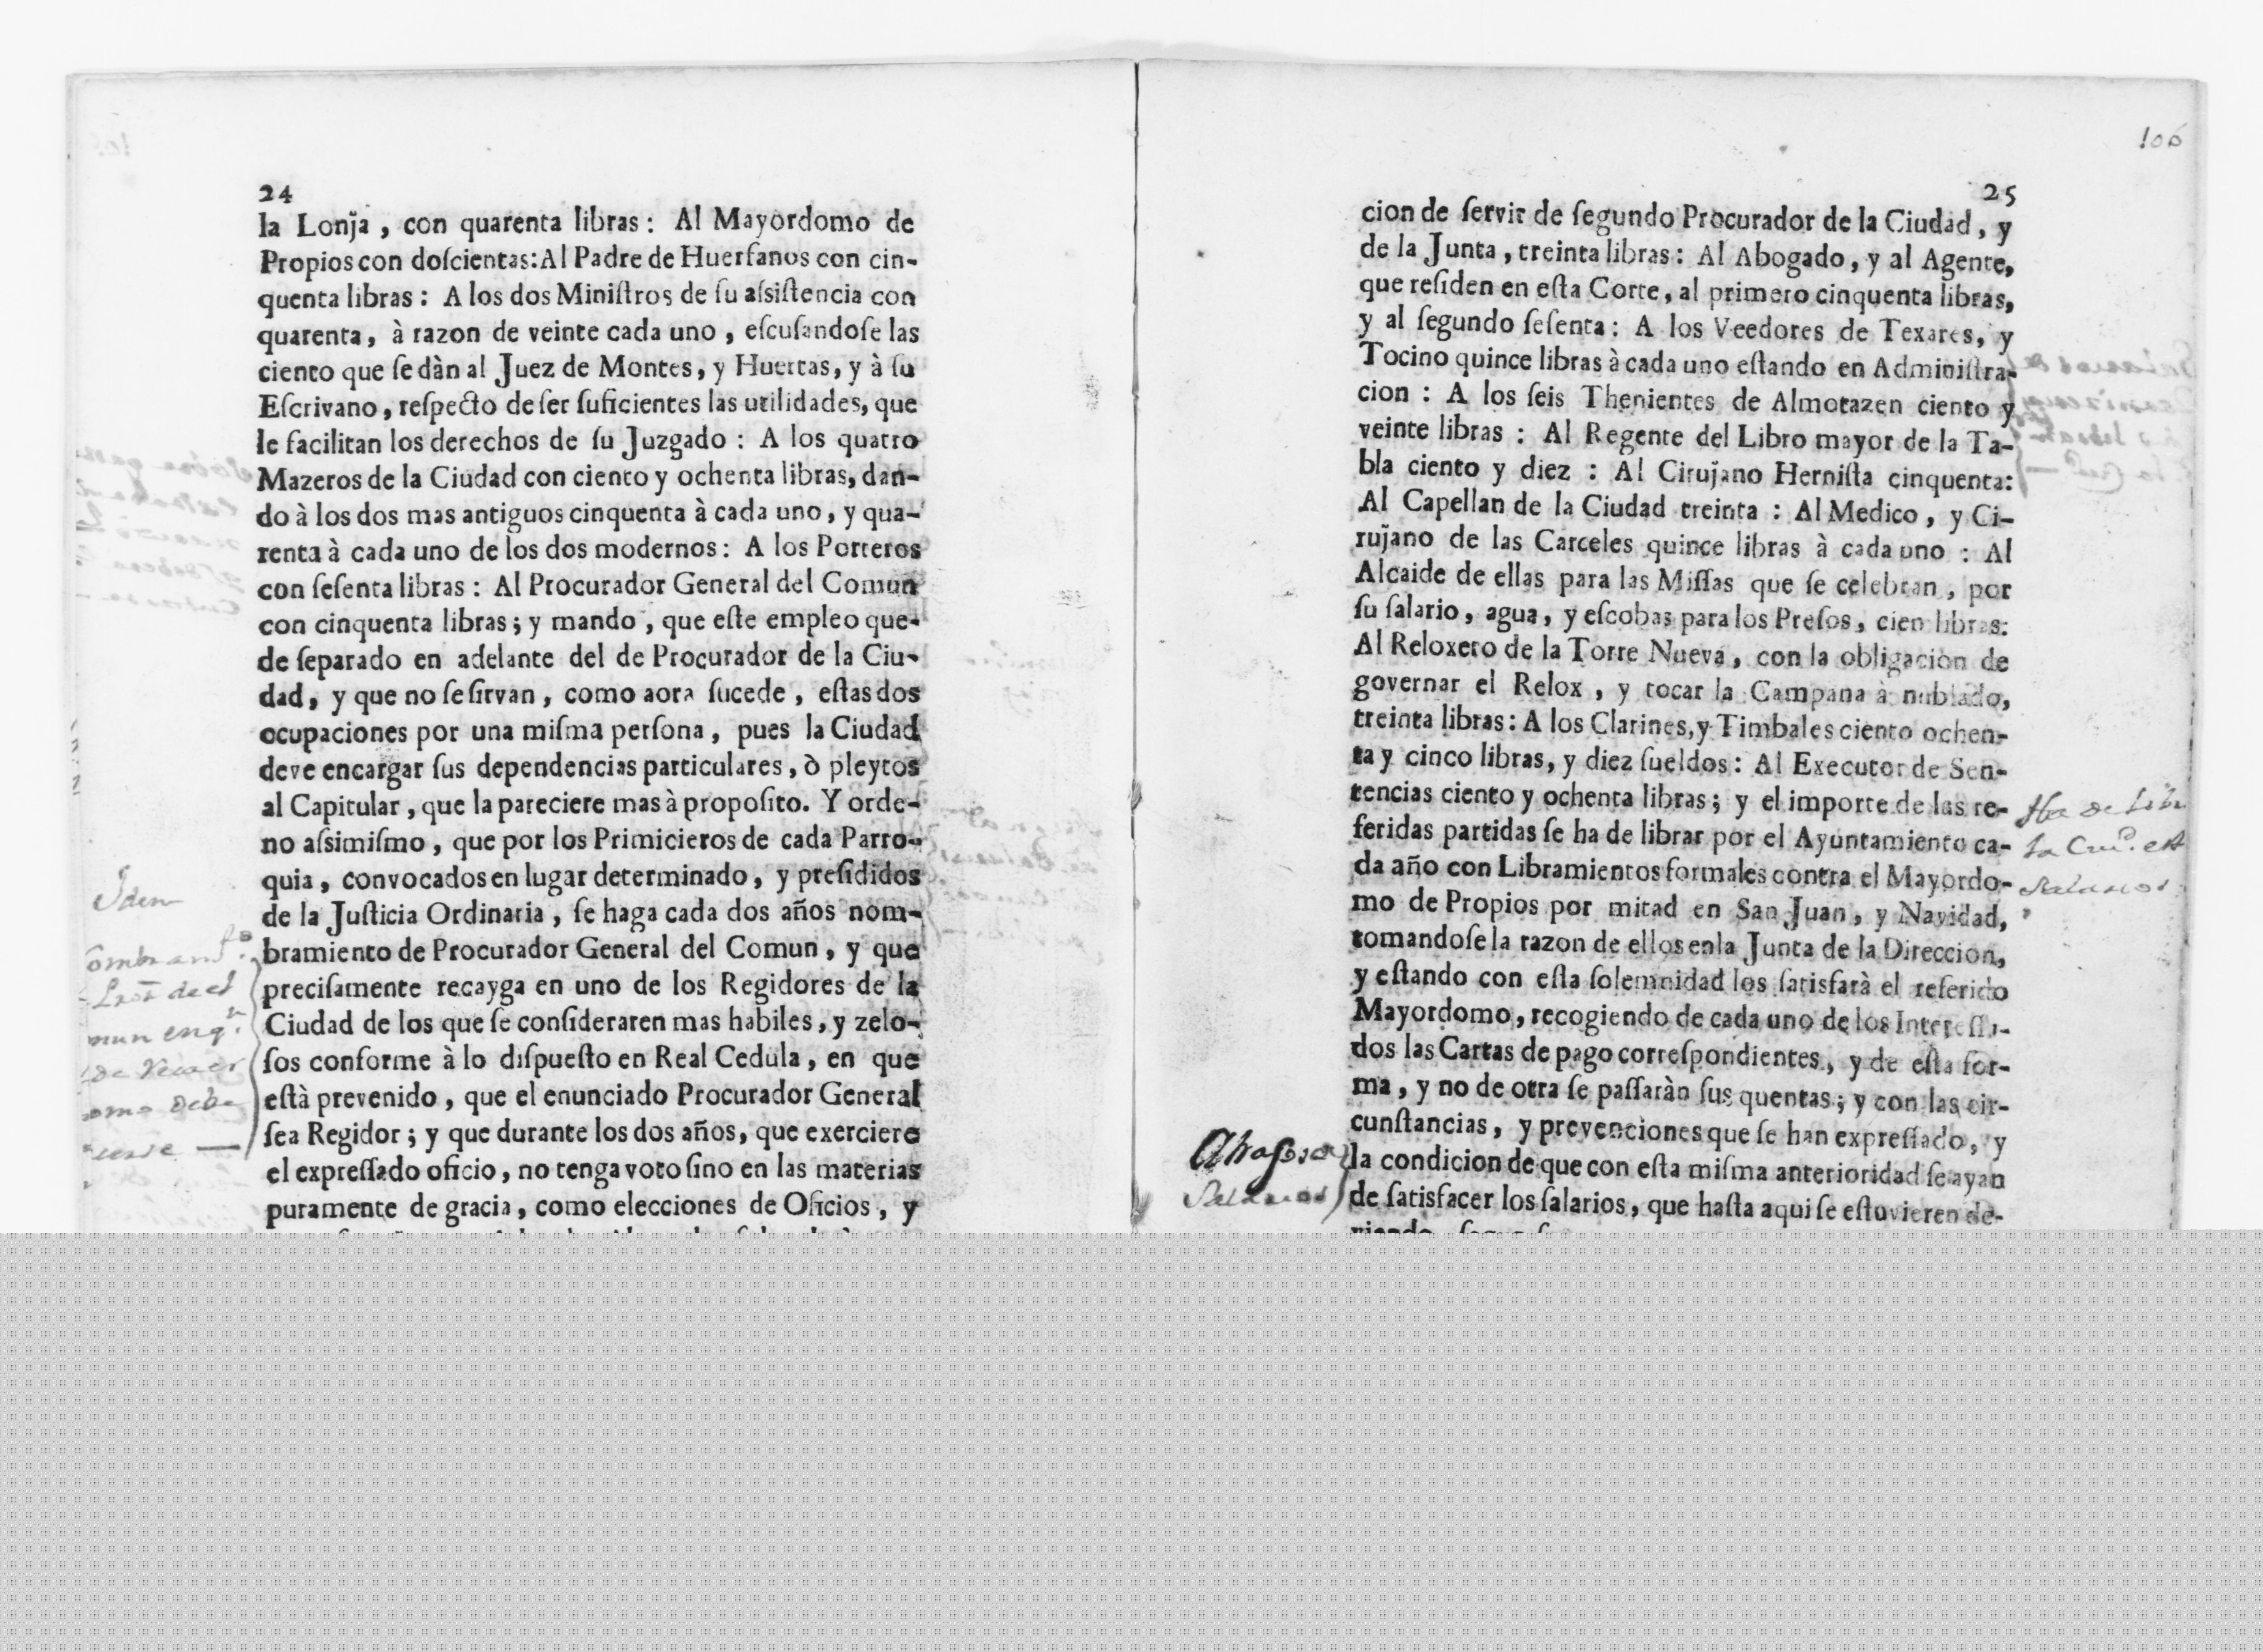 24
la Lonja , con quarenta libras : Al Mayordomo de
Propios con doſcientas: Al Padre de Huerfanos con cin-
quenta libras : A los dos Miniſtros de ſu aſsiſtencia con
quarenta, à razon de veinte cada uno , eſcuſandoſe las
ciento que ſe dàn al Juez de Montes, y Huertas, y à ſu
Eſcrivano, reſpecto de ſer ſuficientes las utilidades, que
le facilitan los derechos de ſu Juzgado : A los quatro
Mazeros de la Ciudad con ciento y ochenta libras, dan-
do à los dos mas antiguos cinquenta à cada uno, y qua-
renta à cada uno de los dos modernos: A los Porteros
con ſeſenta libras : Al Procurador General del Comun
con cinquenta libras; y mando , que eſte empleo que-
de ſeparado en adelante del de Procurador de la Ciu-
dad, y que no ſe ſirvan , como aora ſucede , eſtas dos
ocupaciones por una miſma perſona , pues la Ciudad
deve encargar ſus dependencias particulares, ò pleytos
al Capitular , que la pareciere mas à propoſito. Y orde-
no aſsimiſmo , que por los Primicieros de cada Parro-
quia , convocados en lugar determinado, y preſididos
de la Juſticia Ordinaria , ſe haga cada dos años nom-
bramiento de Procurador General del Comun , y que
preciſamente recayga en uno de los Regidores de la
Ciudad de los que ſe conſideraren mas habiles, y zelo-
ſos conforme à lo diſpueſto en Real Cedula , en que
eſtà prevenido , que el enunciado Procurador General
ſea Regidor ; y que durante los dos años, que exerciere
el expreſſado oficio, no tenga voto ſino en las materias
puramente de gracia, como elecciones de Oficios , y
Iden
106
25
cion de ſervir de ſegundo Procurador de la Ciudad , y
de la Junta , treinta libras : Al Abogado, y al Agente,
que reſiden en eſta Corte, al primero cinquenta libras,
y al ſegundo ſeſenta : A los Veedores de Texares, y
Tocino quince libras à cada uno eſtando en Adminiſtra-
cion : A los ſeis Thenientes de Almotazen ciento y
veinte libras : Al Regente del Libro mayor de la Ta-
bla ciento y diez : Al Cirujano Herniſta cinquenta:
Al Capellan de la Ciudad treinta : Al Medico , y Ci-
rujano de las Carceles quince libras à cada uno : Al
Alcaide de ellas para las Miſſas que ſe celebran , por
ſu ſalario, agua, y eſcobas para los Preſos, cien libras:
Al Reloxero de la Torre Nueva, con la obligacion de
governar el Relox , y tocar la Campana à nublado,
treinta libras: A los Clarines, y Timbales ciento ochen-
ta y cinco libras, y diez ſueldos : Al Executor de Sen-
tencias ciento y ochenta libras; y el importe de las re-
feridas partidas ſe ha de librar por el Ayuntamiento ca-
da año con Libramientos formales contra el Mayordo-
mo de Propios por mitad en San Juan, y Navidad,
tomandoſe la razon de ellos en la Junta de la Direccion,
y eſtando con eſta ſolemnidad los ſatisfarà el referido
Mayordomo, recogiendo de cada uno de los Intereſſa-
dos las Cartas de pago correſpondientes, y de eſta for-
ma , y no de otra ſe paſſaràn ſus quentas; y con las cir-
cunſtancias, y prevenciones que ſe han expreſſado, y
la condicion de que con eſta miſma anterioridad ſe ayan
de ſatisfacer los ſalarios, que haſta aqui ſe eſtuvieren de-
Salarios